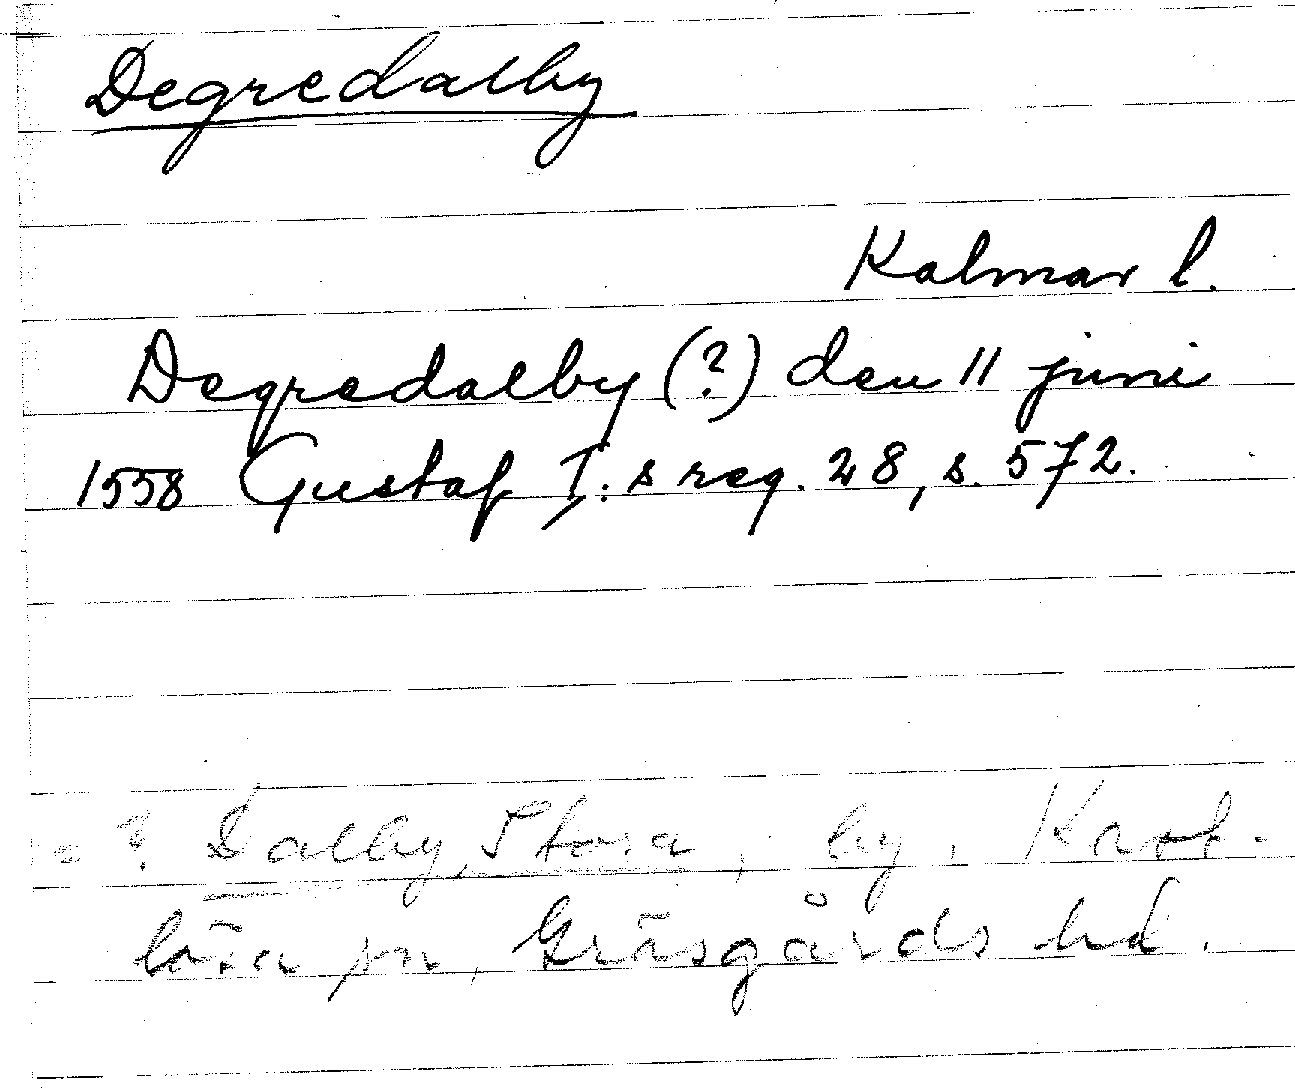 Degredalby
Kalmar l.
Degredalby (?) den 11 juni
1558 Gustaf I:s reg. 28, s. 572.
= ? Dalby, Stora, by, Kast-
lösa sn, Gräsgårds hd.